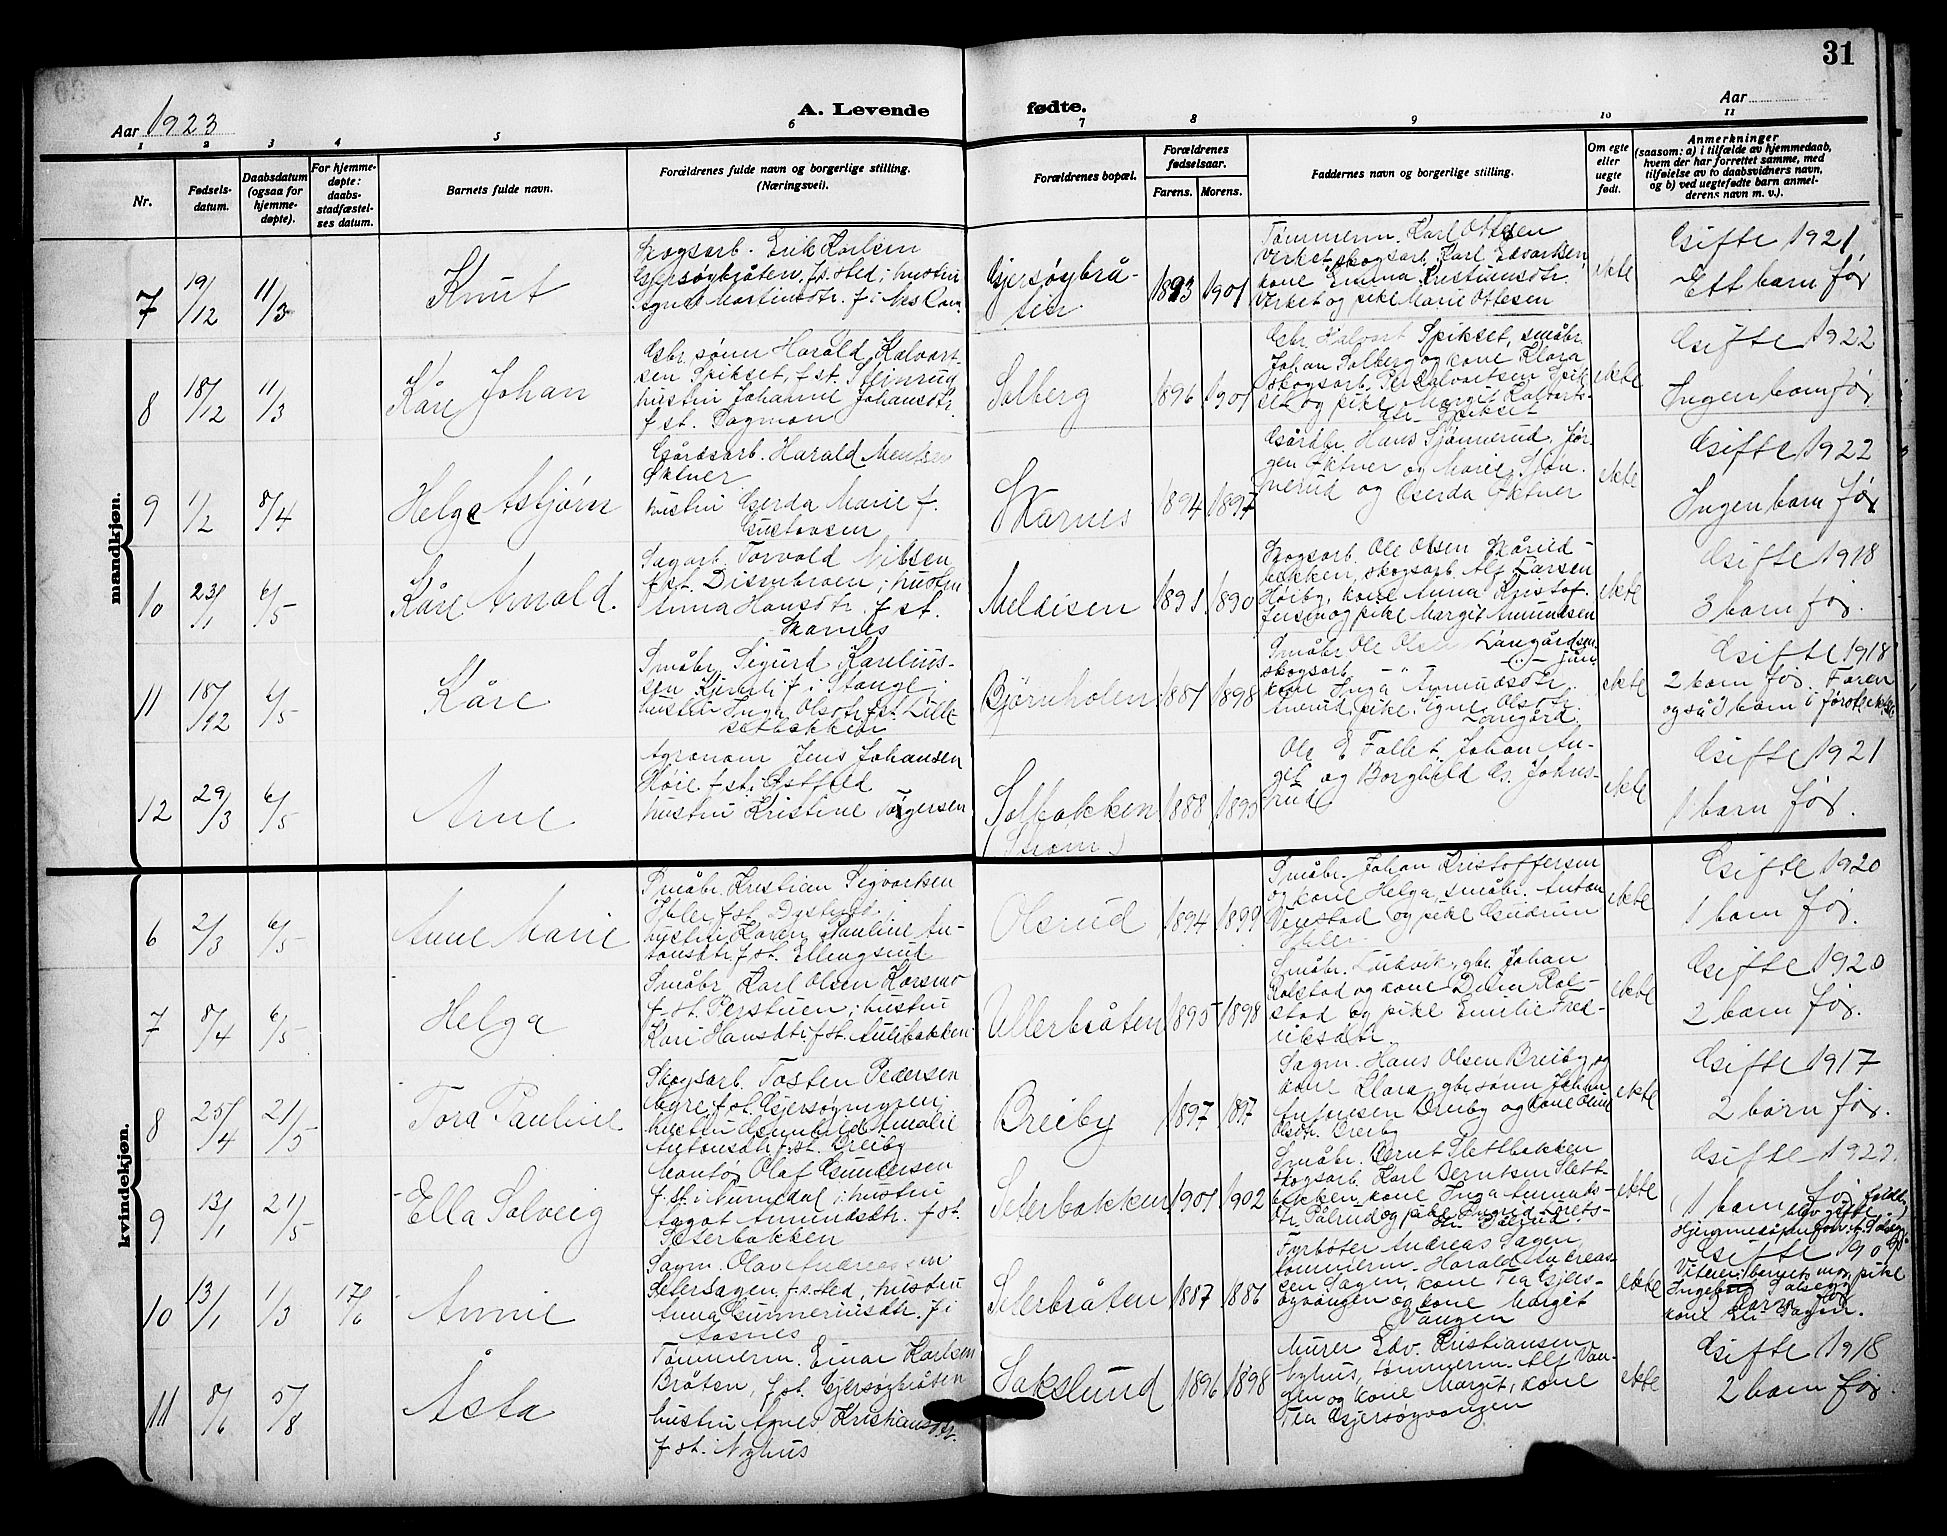 31
A. Levende fødte.
Aar 1923
Aar
1 2 3 4 5 6 7 8 9 10 11
Nr.
Fødsels-
datum.
Daabsdatum
(ogsaa for
hjemme-
døpte).
For hjemme-
døpte:
daabs-
stadfæstel-
ses datum.
Barnets fulde navn.
Forældrenes fulde navn og borgerlige stilling.
(Næringsvei).
Forældrenes bopæl.
Forældrenes
fødselsaar.
Farens. Morens.
Faddernes navn og borgerlige stilling.
Om egte
eller
uegte
født.
Anmerkninger
(saasom: a) i tilfælde av hjemmedaab,
hvem der har forrettet samme, med
tilføielse av to daabsvidners navn,
og b) ved uegtefødte barn anmel-
derens navn m. v.).
mandkjøn.
7
19/12
11/3
Knut
Skogsarb. Erik Karlsen
Gjersøybråten, f. sted; hustru
Signe Martinsdtr. f. i Nes Rom.
Gjersøybrå-
ten
1893 1901
Tømmerm. Karl Ottesen
Virket, skogsarb. Karl Edvartsen,
kone Emma Kristiansdtr.
Virket og pike Marie Ottesen
ekte
Gifte 1921
Ett barn før
8
18/12
11/3
Kåre Johan
Gbr. sønn Harald Halvart-
sen Spikset, f. st. Steinrud
hustru Johanne Johansdtr.
f. st. Dagmon
Solberg
1896 1901
Gbr. Halvart Spikset, småbr.
Johan Solberg og kone Klara
skogsarb. Per Halvartsen Spik-
set og pike Margit Halvarts-
dtr. Spikset
ekte
Gifte 1922
Ingen barn før
9
1/2
8/4
Helge Asbjørn
Gårdsarb. Harald Mentsen
Øktner
hustru Gerda Marie f.
Gustavsen
Skarnes
1894 1897
Gårdbr. Hans Sjønnerud, Jør-
gen Øktner og Marie Sjøn-
nerud og Gerda Øktner
ekte
Gifte 1922
Ingen barn før
10
23/1
6/5
Kåre Arnold
Sagarb. Torvald Nilsen
f. st. Disenbroen; hustru
Anna Hansdtr. f. st.
Skarnes
Meldisen
1891 1890
Skogsarb. Ole Olsen Skårud-
bakken, skogsarb. Alf Larsen
Høiby, kone Anna Kristof-
fersen og pike Margit Amundsen
ekte
Gifte 1918
3 barn før.
11
18/12
6/5
Kåre
Småbr. Sigurd Karelius-
sen f. i Stange;
hustru Inga Olsdtr. f. st. Lille
setbakken
Bjørnholen
1887 1898
Småbr. Ole Olsen Langård sen.
skogsarb. -"- -"- jun.
kone Inga Amundsdtr.
pike Signe Olsdtr.
Langård
ekte
Gifte 1918
2 barn før. Faren
også 1 barn i første ekte
12
29/3
6/5
Arne
Agronom Jens Johansen
Høie f. st. i Østfold
hustru Kristine Torgersen
Solbakken
(Strøm)
1888 1895
Ole E Fallet, Johan An-
get og Borghild G. Johns-
rud
ekte
Gifte 1921
1 barn før
kvindekjøn.
6
2/3
6/5
Anne Marie
Småbr. Kristian Sigvartsen
Ihler f. st. Dysterud
hustru Karen Pauline An-
tonsdtr. f. st. Ellingsrud
Olsrud
1894 1899
Småbr. Johan Kristoffersen
og kone Helga, småbr. Anton
Venstad og pike Gudrun
Ihler
ekte
Gifte 1920
1 barn før.
7
8/4
6/5
Helga
Småbr. Karl Olsen Korsmo
f. st. Perstuen; hustru
Kari Hansdtr. f. st. Aulibakken
Ullerbråten
1895 1898
Småbr. Ludvik, gbr. Johan
Rolstad og kone Rol-
stad og pike Emilie Fred-
riksdtr.
ekte
Gifte 1920
2 barn før.
8
25/4
21/5
Tora Pauline
Skogsarb. Tosten Pedersen
Myre f. st. Gjersøymyren;
hustru Gunhild Amalie
Antonsdtr. f. st. Breiby
Breiby
1897 1897
Sagm. Hans Olsen Breiby og
kone Klara, gbr. sønn Johan
Antonsen Breiby og kone Oline
Olsdtr. Breiby
ekte
Gifte 1917
2 barn før.
9
13/1
21/5
Ella Solveig
Kantor Olaf Gundersen
f. st. i Numedal; hustru
Aagot Amundsdtr. f. st.
Seterbakken
Seterbakken
1901 1902
Småbr. Bernt Slettbakken
skogsarb. Karl Berntsen Slett-
bakken, kone Inga Amunds-
dtr. Pålsrud og pike Ingrid Lorets-
dtr. Pålsrud.
ekte
Gifte 1922.
1 barn før
10
13/1
1/3
17/6
Annie
Sagm. Olav Andreassen
Setersagen, f. sted, hustru
Anna Gunneriusdtr. f. i
Åsnes
Seterbråten
1887 1886
Fyrbøter Andreas Sagen,
tømmerm. Harald Andreas-
sen Sagen, kone Tea Gjers-
øyvangen og kone Margit
Vangen
ekte
Gifte 1909
Vitner: barnets mor, pike
Ingeborg Solberg
kone Sagen.
11
8/6
5/8
Åsta
Tømmerm. Einar Karlsen
Bråten, f. st. Gjersøybråten
hustru Agnes Kristiansdtr.
f. st. Nyhus
Sakslund
1896 1898
Murer Edv. Kristiansen
Nyhus, tømmerm. Alf Van-
gen og kone Margit, kone
Tea Gjersøyvangen
ekte
Gifte 1918
2 barn før